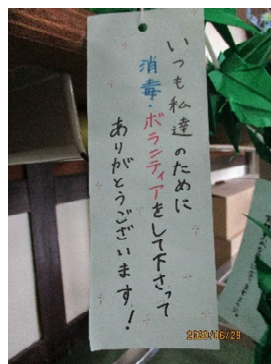 いつも私達のために
消毒・ボランティアをして下さって
ありがとうございます!
2020/06/29